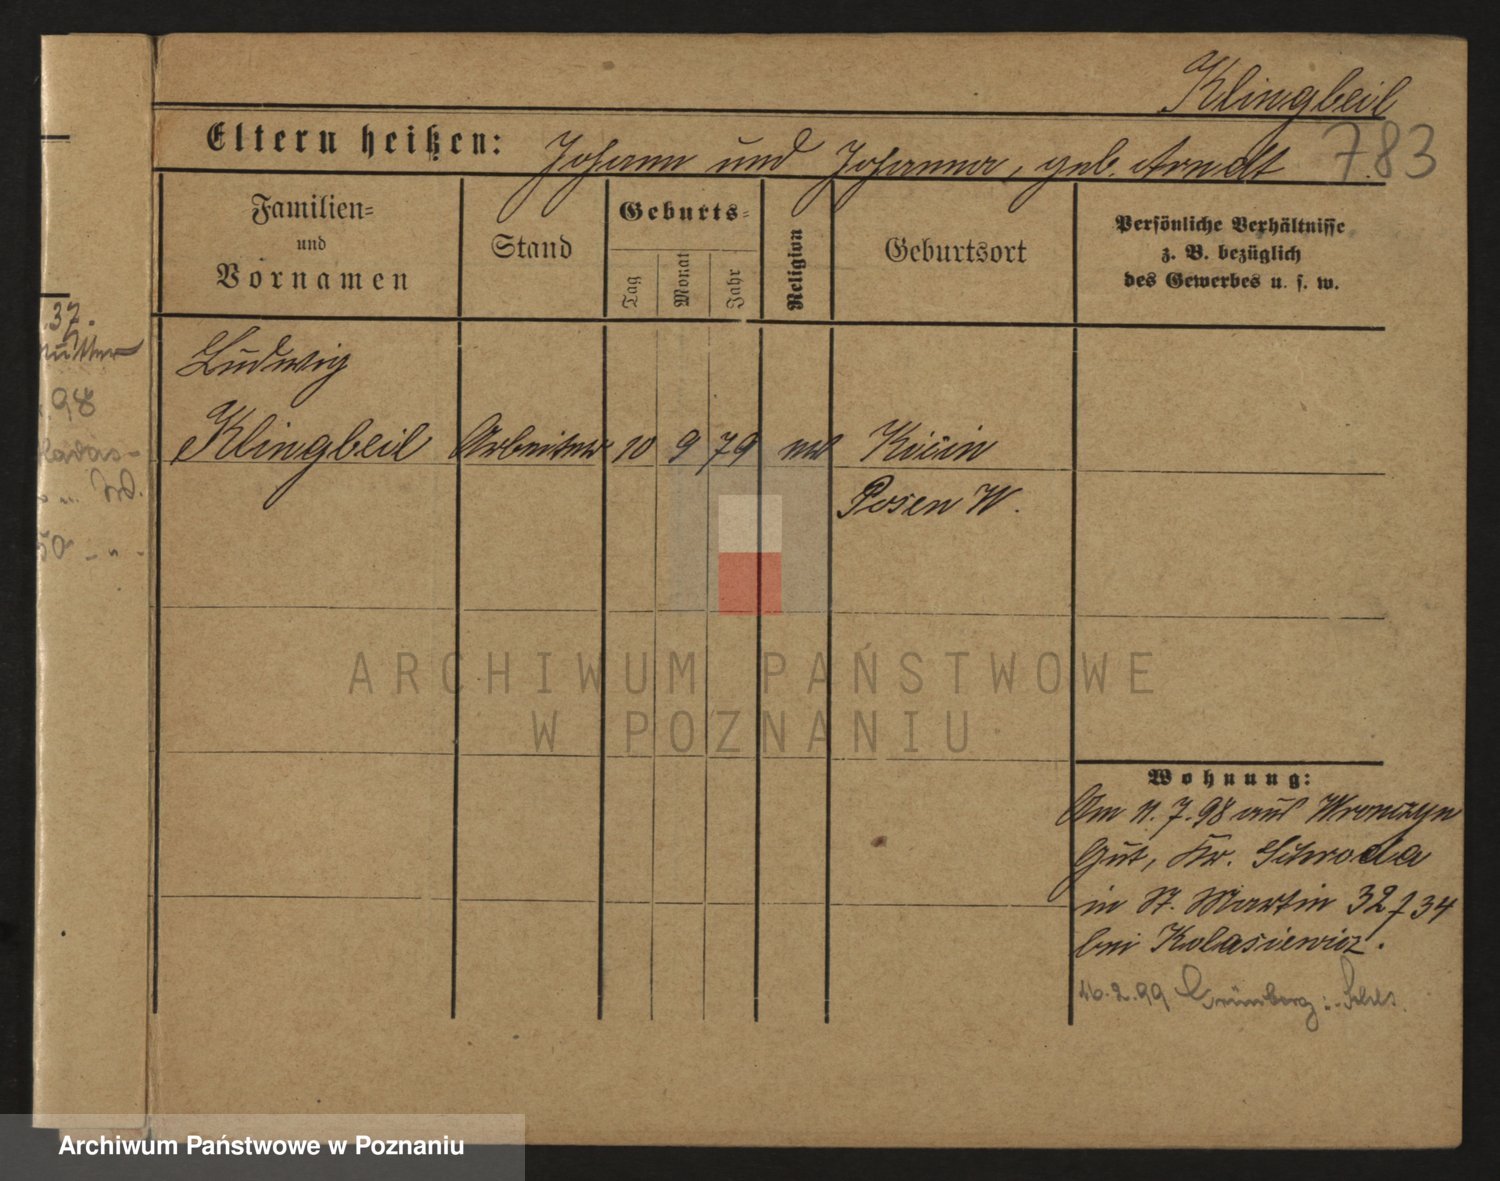 Klingbeil
783
Eltern heißen: Johann und Johanna, geb. Arndt
Familien=
und
Vornamen
Stand
Geburts=
Tag
Monat
Jahr
Religion
Geburtsort
Persönliche Verhältnisse
z. B. bezüglich
des Gewerbes u. s. w.
37.
98
50 - " -
Ludwig
Klingbeil Arbeiter 10 9 79 Kicin
Posen W.
ARCHIWUM PAŃSTWOWE
W POZNANIU
Wohnung:
Am 11.7.98 aus Wronczyn
Gut, Kr. Schroda
in St. Martin 32/34
bei Kolasiewicz.
2.99 Grünberg i. Schls.
Archiwum Państwowe w Poznaniu